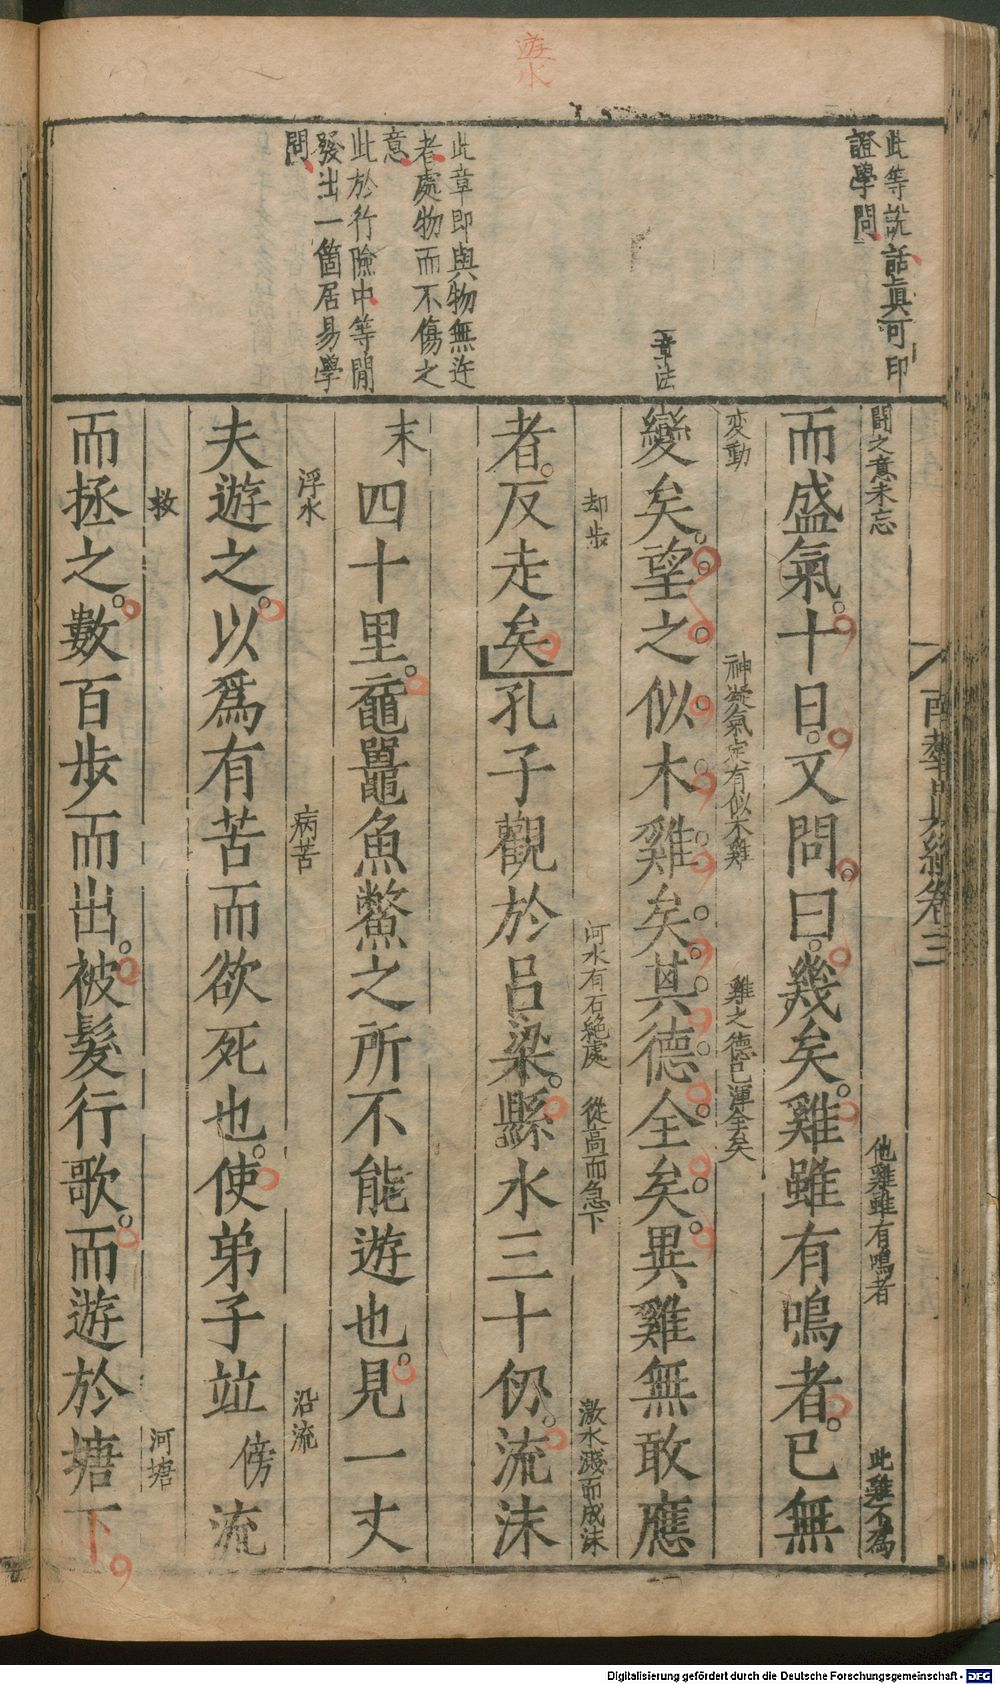 遊水
此等説話眞可印
證學問
一章法
此章即與物無迕
者處物而不傷之
意
此於行險中等閒
發出一箇居易學
問
南華真經卷三
鬪之意未忘
他雞雖有鳴者
此雞不爲
而盛氣十日又問曰幾矣雞雖有鳴者已無
変動
神凝氣定有似木雞
雞之德已渾全矣
變矣望之似木雞矣其德全矣異雞無敢應
却步
河水有石絶處
從高而急下
激水濺而成沫
者反走矣孔子觀於呂梁縣水三十仞流沫
末
四十里黿鼉魚鱉之所不能遊也見一丈
浮水
病苦
沿流
夫遊之以爲有苦而欲死也使弟子竝傍流
救
河塘
而拯之數百步而出被髮行歌而遊於塘下
Digitalisierung gefördert durch die Deutsche Forschungsgemeinschaft - DFG